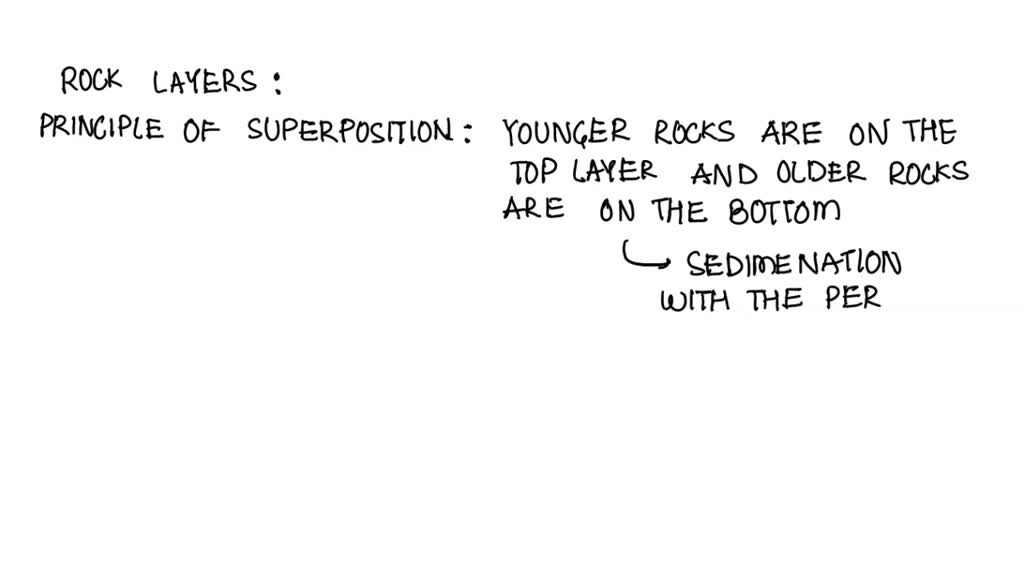 ROCK LAYERS:
PRINCIPLE OF SUPERPOSITION: YOUNGER ROCKS ARE ON THE
TOP LAYER AND OLDER ROCKS
ARE ON THE BOTTOM
SEDIMENATION
WITH THE PER